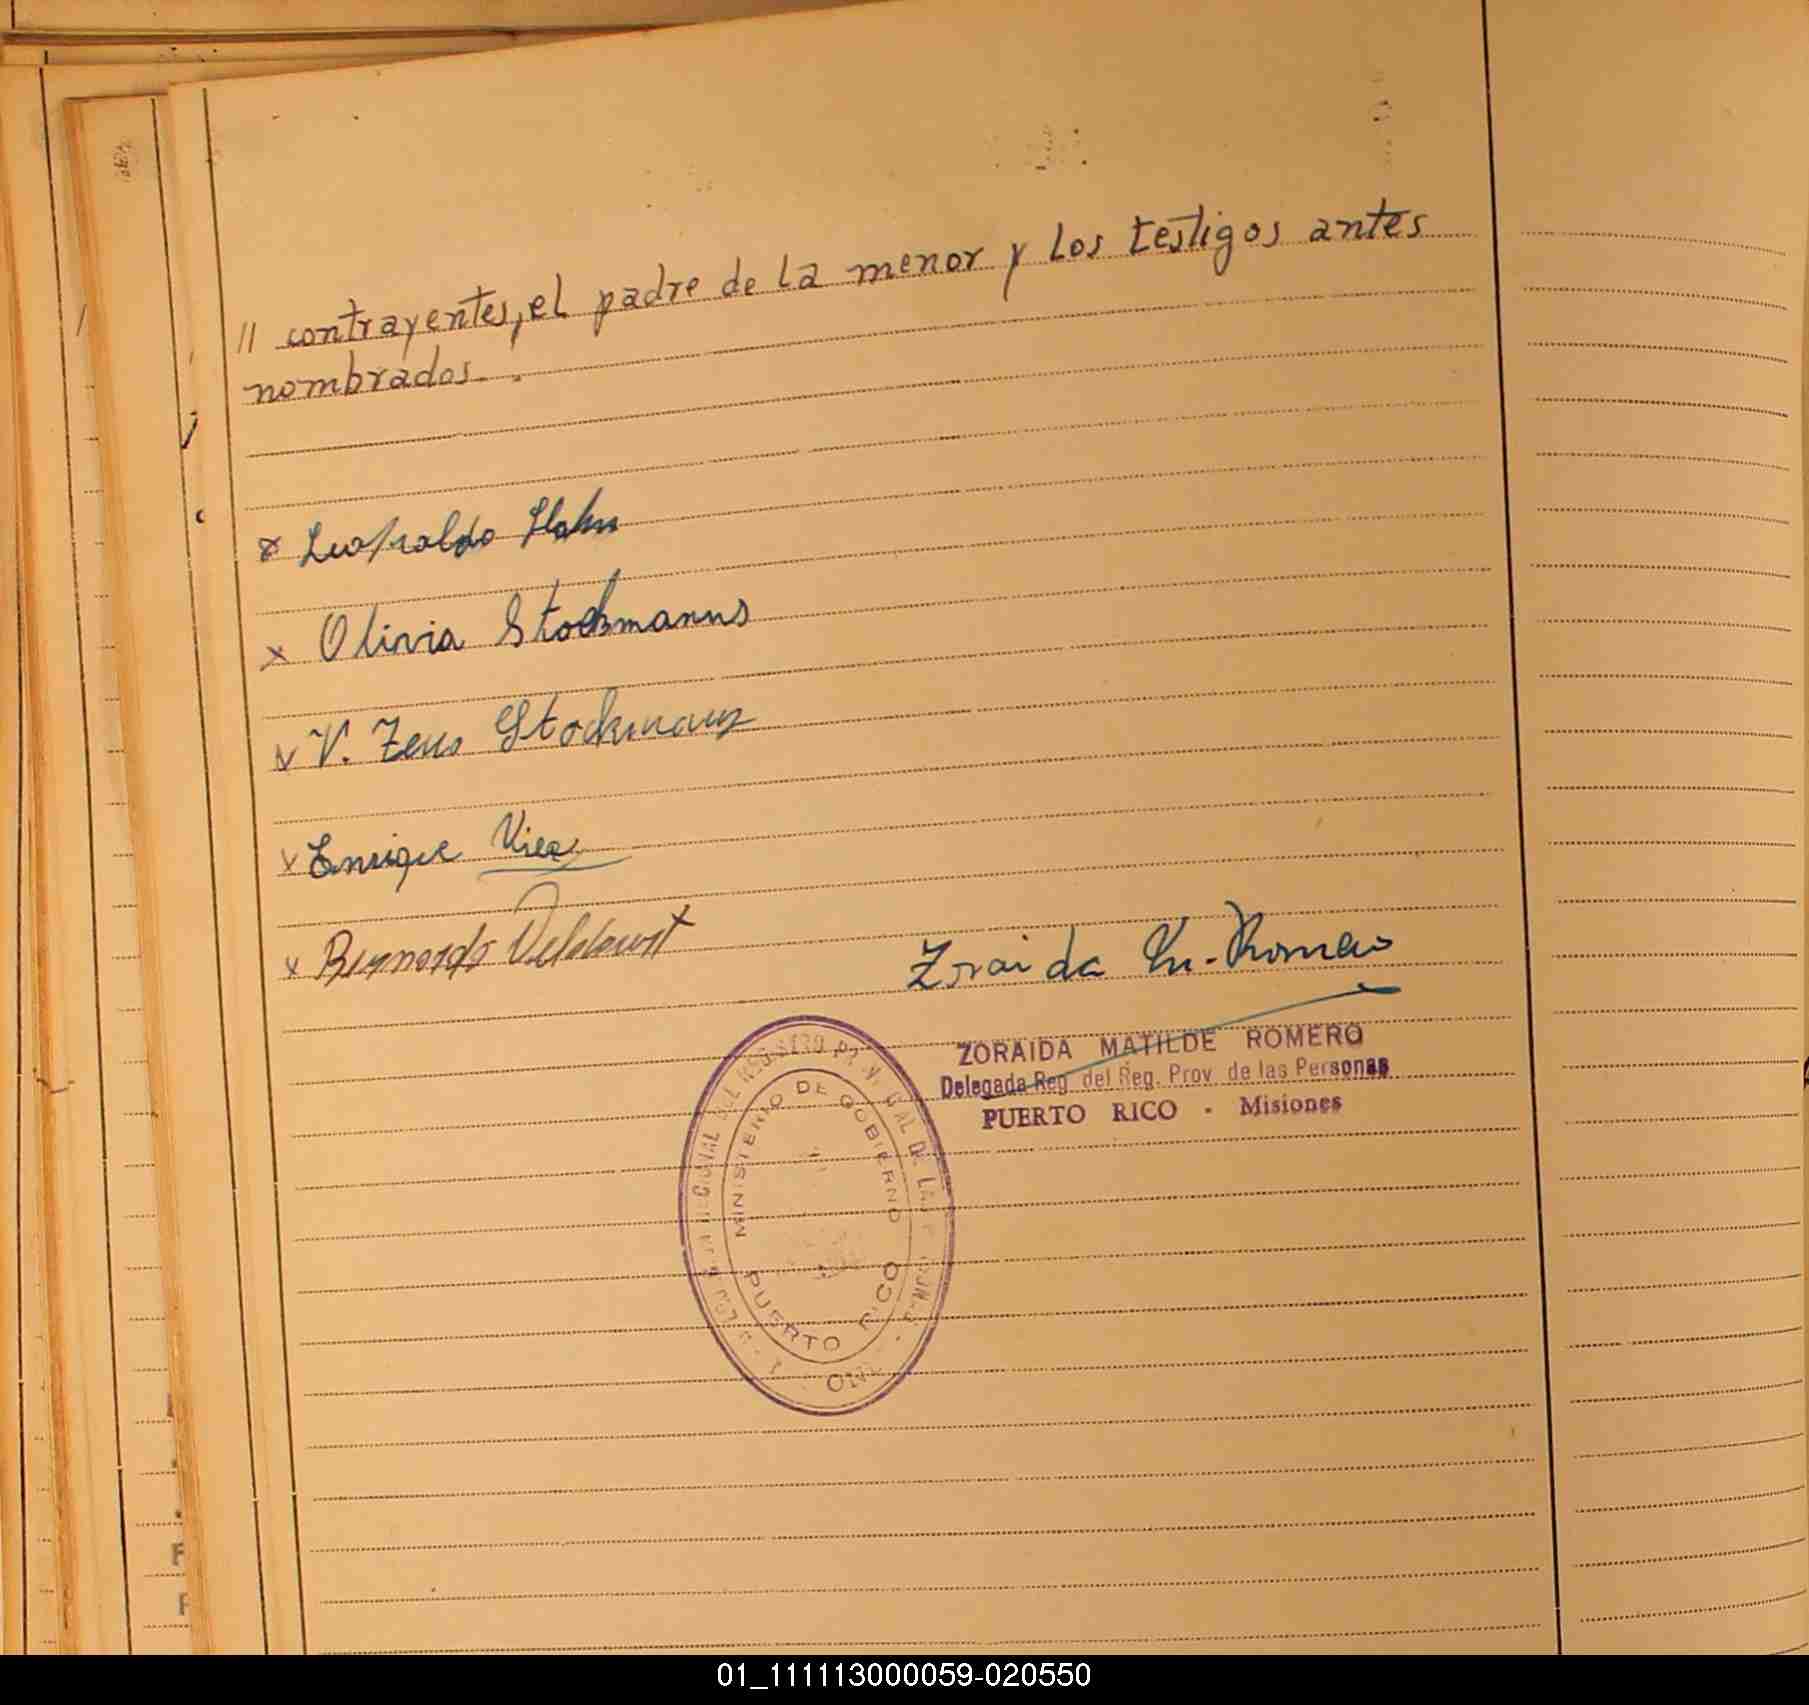 // contrayentes, el padre de la menor y los testigos antes
nombrados. .
x Leopoldo Hahn
x Olivia Stockmanns
V. Zeno Stockmanns
Enrique
x Bernardo
Zoraida M. Romero
ZORAIDA MATILDE ROMERO
Delegada Reg. del Reg. Prov. de las Personas
PUERTO RICO - Misiones
MINISTERIO DE GOBIERNO
PUERTO RICO
01_111113000059-020550